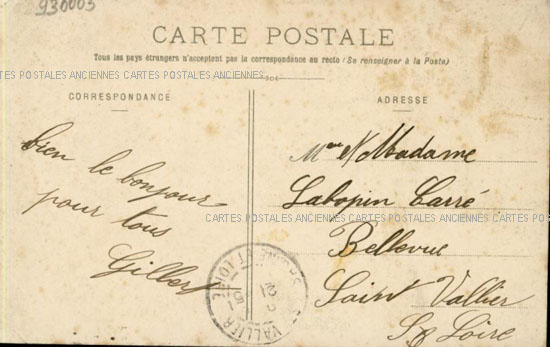 930003
CARTE POSTALE
Tous les pays étrangers n'acceptent pas la correspondance au recto (Se renseigner à la Poste)
CARTES POSTALES ANCIENNES CARTES POSTALES ANCIENNES
CORRESPONDANCE
bien le bonjour
pour tous
Giller
ADRESSE
Mme Madame
Labopin Carré
CARTES POSTALES ANCIENNES CARTES POSTALES ANCIENNES CARTES POS
Bellevue
Saint Vallier
S & Loire
VALLIER
ET LOIRE
21